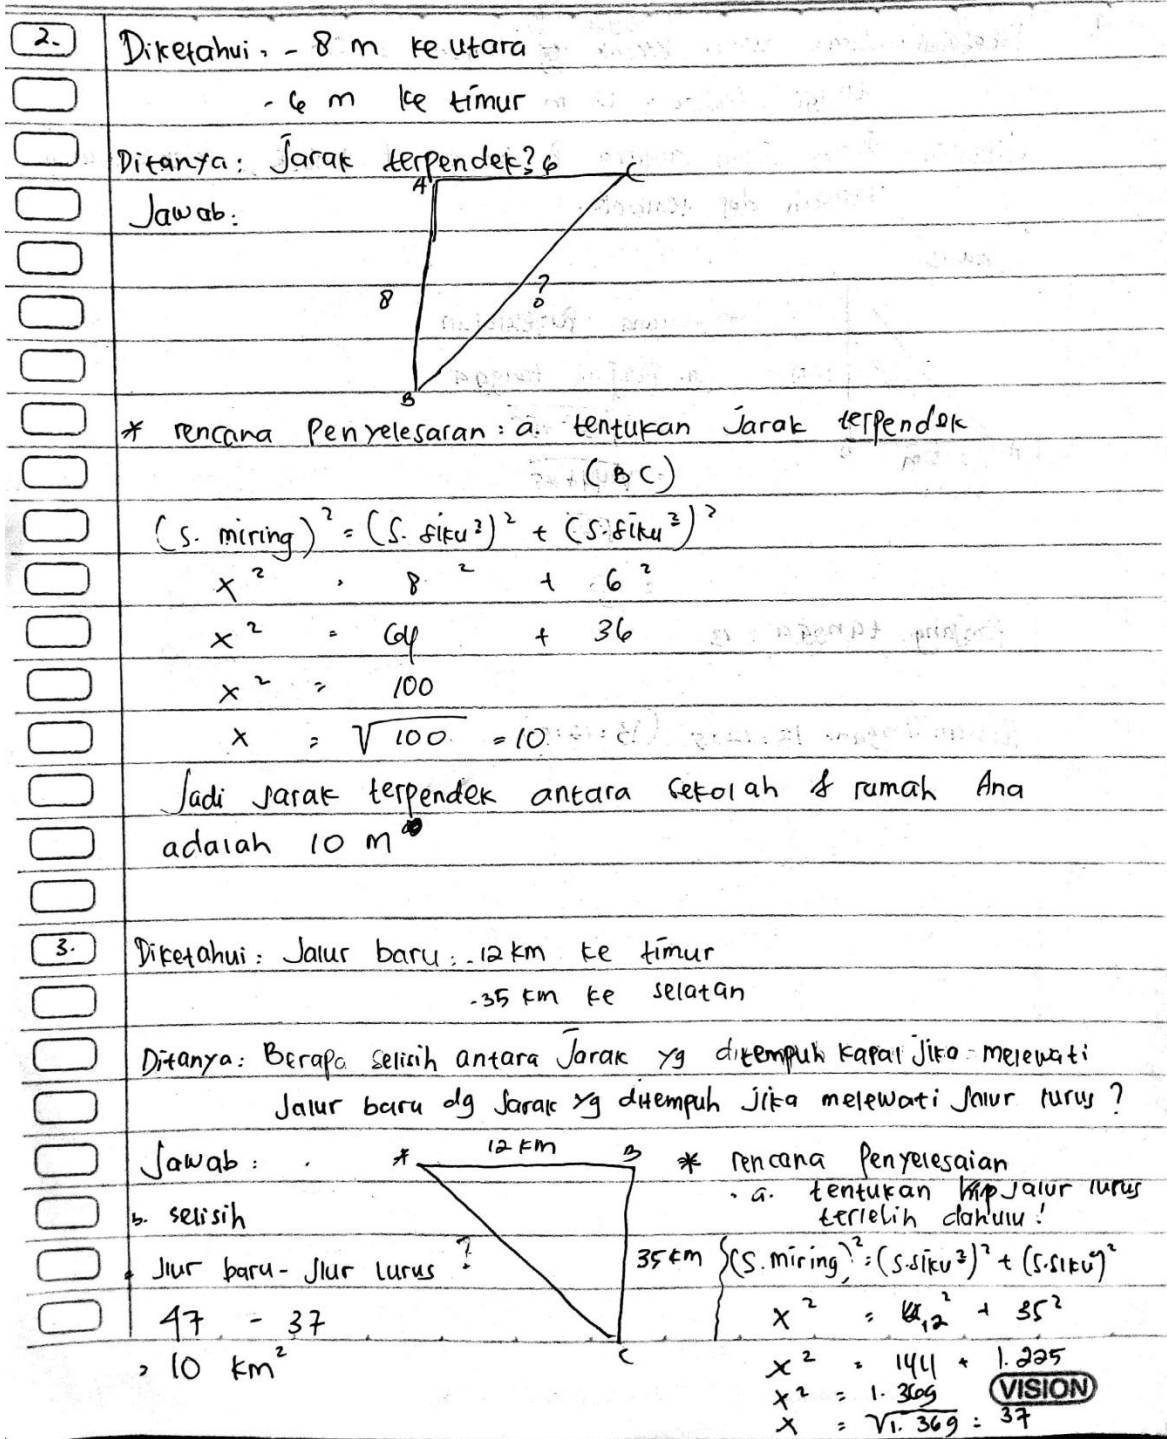 2.
Diketahui: - 8 m ke utara
- 6 m ke timur
Ditanya: Jarak terpendek?
6
A C
Jawab:
8 ?
B
* rencana Penyelesaian: a. tentukan Jarak terpendek
(BC)
(s. miring)² = (s. siku²)² + (s. siku²)²
x² = 8² + 6²
x² = 64 + 36
x² = 100
x = √100 = 10
Jadi jarak terpendek antara sekolah & rumah Ana
adalah 10 m
3.
Diketahui: Jalur baru: - 12 km ke timur
- 35 km ke selatan
Ditanya: Berapa selisih antara Jarak yg ditempuh kapal jika melewati
Jalur baru dg Jarak yg ditempuh jika melewati jalur lurus?
Jawab:
A 12 km B
35 km
?
C
* rencana Penyelesaian
a. tentukan jalur lurus
terlebih dahulu!
(s. miring)² = (s.siku²)² + (s.siku)²
x² = 12² + 35²
x² = 144 + 1.225
x² = 1.369
x = √1.369 = 37
b. selisih
Jlur baru - Jlur lurus
47 - 37
= 10 km²
VISION